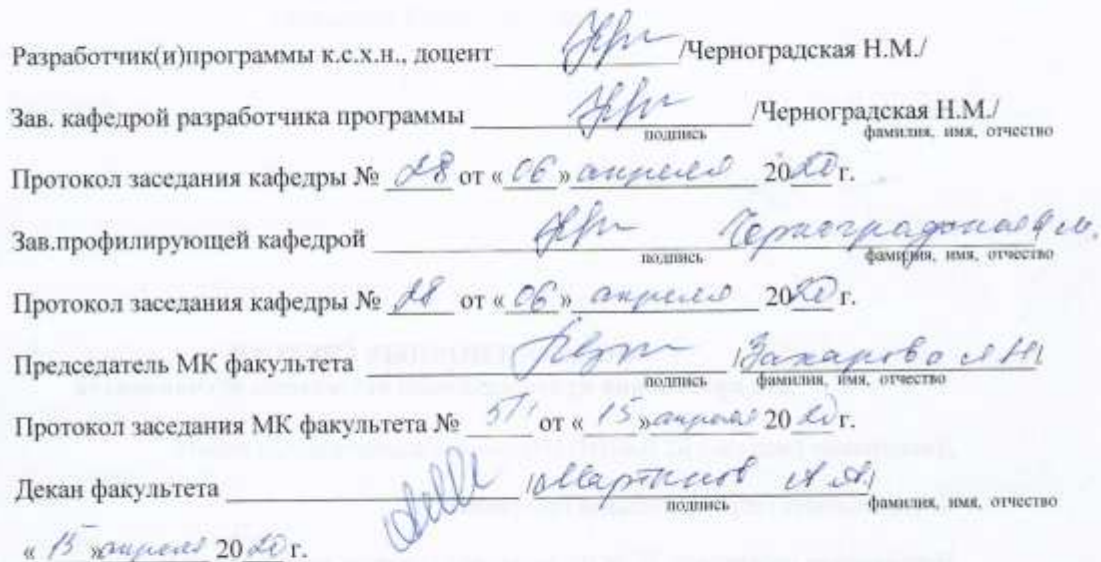 Разработчик(и)программы к.с.х.н., доцент /Черноградская Н.М./
Зав. кафедрой разработчика программы /Черноградская Н.М./
подпись фамилия, имя, отчество
Протокол заседания кафедры № 28 от « 06 » апреля 2020 г.
Зав.профилирующей кафедрой Черноградская Н.М.
подпись фамилия, имя, отчество
Протокол заседания кафедры № 28 от « 06 » апреля 2020 г.
Председатель МК факультета /Захарова Л.Н/
подпись фамилия, имя, отчество
Протокол заседания МК факультета № от « 15 » апреля 20 20 г.
Декан факультета /Мартынов А.А/
подпись фамилия, имя, отчество
« 15 » апреля 20 20 г.